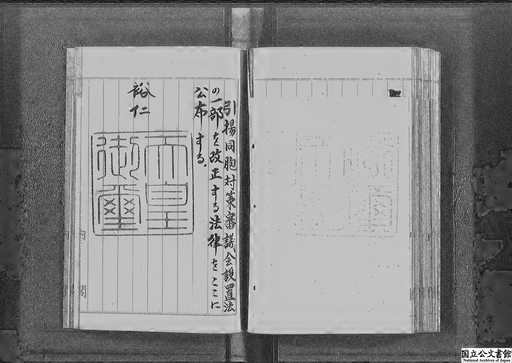 引揚同胞対策審議会設置法
の一部を改正する法律をここに
公布する。
裕仁
天皇
御璽
国立公文書館
National Archives of Japan